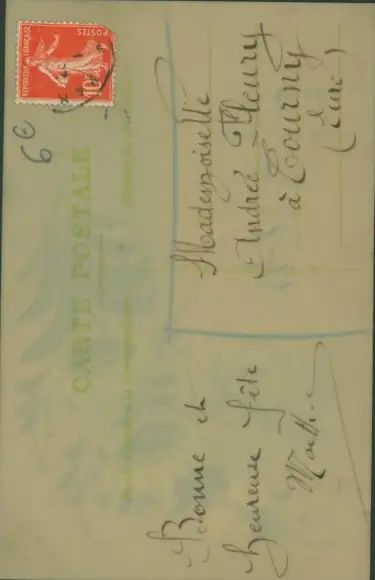 REPUBLIQUE FRANÇAISE
POSTES
10
6€
CARTE POSTALE
Mademoiselle
Andrée Fleury
à Tourny
(Eure)
Bonne et
heureuse fête